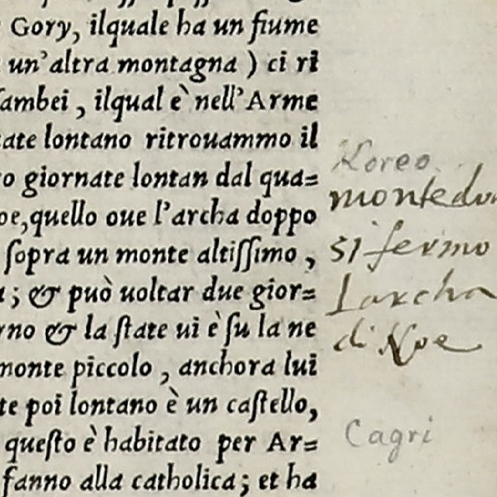 Gory, ilquale ha un fiume
un'altra montagna) ci ri
ambei, ilqual è nell'Arme
ate lontano ritrouammo il
o giornate lontan dal qua=
oe, quello oue l'archa doppo
sopra un monte altissimo,
; & può uoltar due gior=
rno & la state ui è su la ne
monte piccolo, anchora lui
te poi lontano è un castello,
questo è habitato per Ar=
fanno alla catholica; et ha
Noreo
monte dou
si fermo
Larcha
di Noe
Cagri